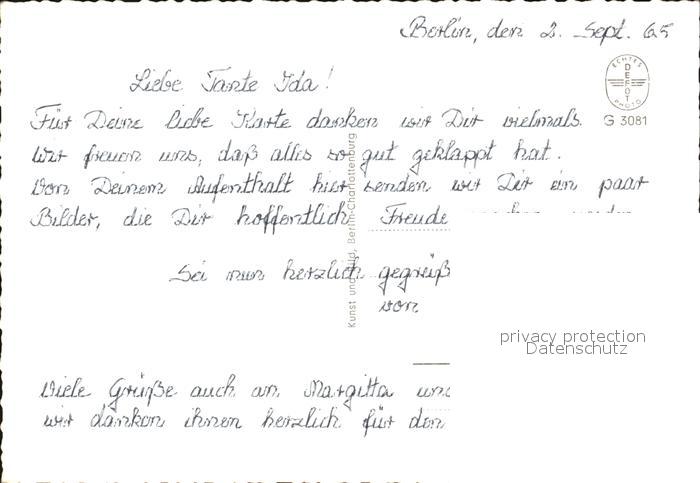 Berlin, den 2. Sept. 65
ECHTES
DEFOT
PHOTO
G 3081
Liebe Tante Ida!
Für Deine liebe Karte danken wir Dir vielmals.
Wir freuen uns, daß alles so gut geklappt hat.
Von Deinem Aufenthalt hier senden wir Dir ein paar
Bilder, die Dir hoffentlich Freude
Sei nun herzlich gegrüß
von
Kunst und Bild, Berlin-Charlottenburg
privacy protection
Datenschutz
Viele Grüße auch an Margitta und
wir danken ihnen herzlich für den